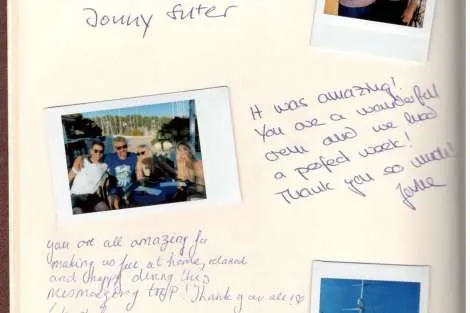 Jonny Suter
It was amazing!
You are a wonderful
crew and we had
a perfect week!
Thank you so much!
you are all amazing for
making us feel at home, relaxed
and happy during this
mesmorizing trip! Thank you all so